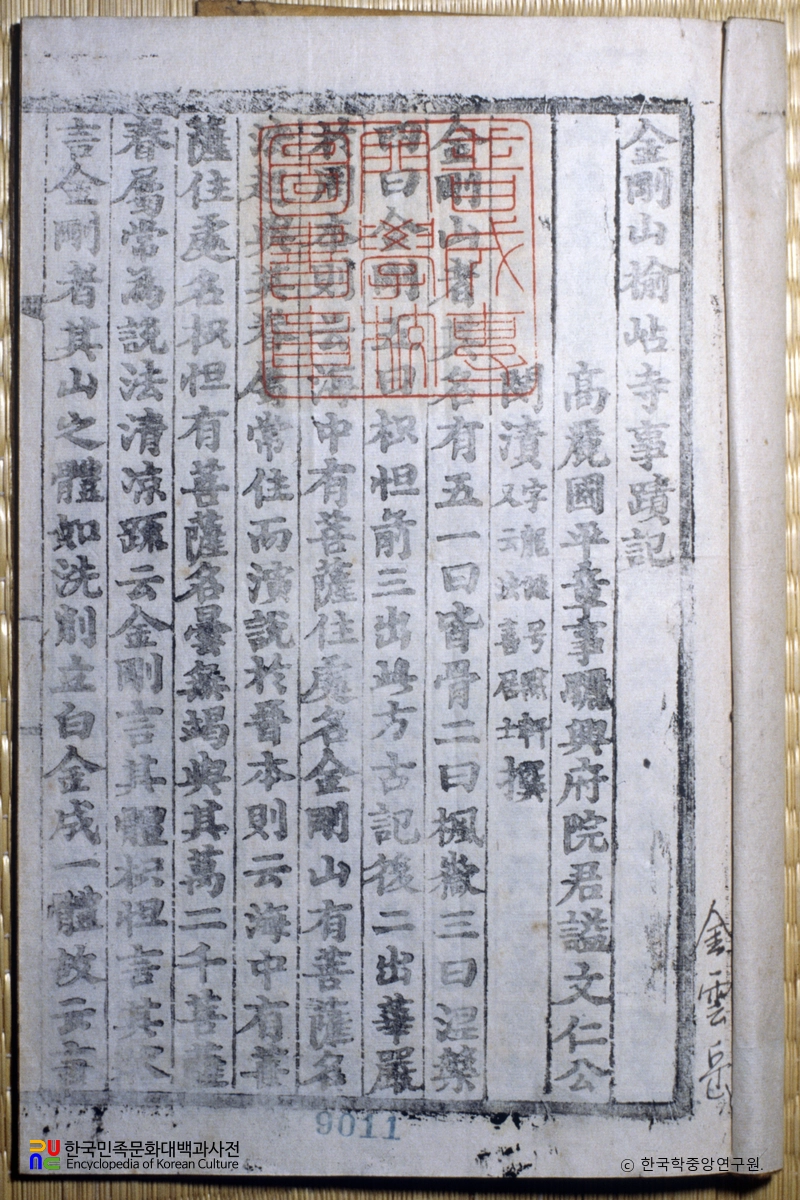 金剛山榆岾寺事蹟記
高麗國平章事驪興府院君謚文仁公
閔漬字龍涎号默軒又云法喜居士撰
金剛山者其名有五一曰皆骨二曰楓嶽三曰涅槃
四曰金剛五曰枳怛前三出此方古記後二出華嚴
於周本則云海中有菩薩住處名金剛山有菩薩名
法起與其眷属常住而演說於晉本則云海中有菩
薩住處名枳怛有菩薩名曇無竭與其萬二千菩薩
眷屬常為說法清涼疏云金剛言其體枳怛言其
言金剛者其山之體如洗削立白金成一體故云言
普成專
門學校
圖書章
金雲岳
9011
한국민족문화대백과사전
Encyclopedia of Korean Culture
© 한국학중앙연구원.